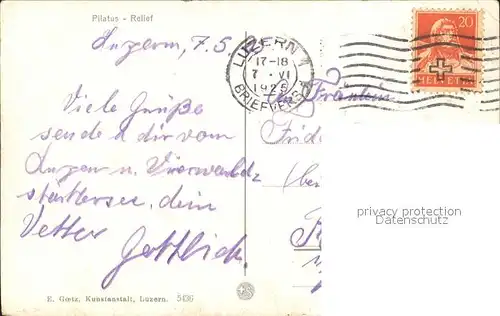 Pilatus - Relief
Luzern, 7.5.
LUZERN
17-18
7. VI
1925
BRIEFVERSAND
20
HELVETIA
Fräulein
Viele Grüße
sendet dir vom
Luzern u. Vierwald-
stättersee, dein
Vetter
Gottlieb.
Frid
privacy protection
Datenschutz
E. Goetz, Kunstanstalt, Luzern. 5436